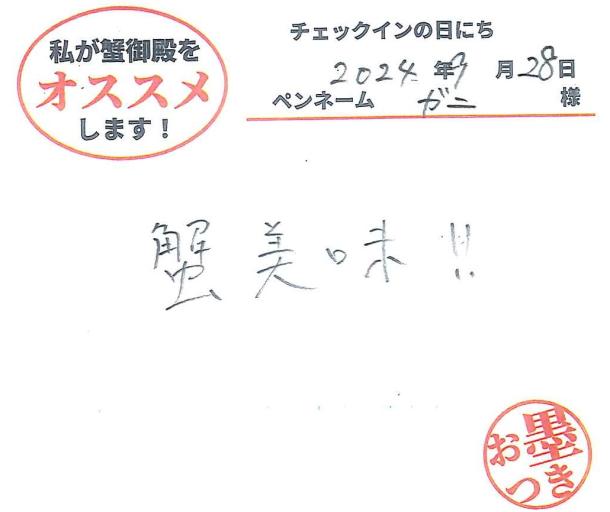 私が蟹御殿を
オススメ
します！
チェックインの日にち
2024年9月28日
ペンネーム ガニ 様
蟹美味!!
お墨
つき